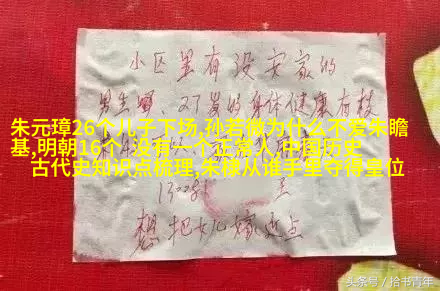 小区里有没安家的
男生嘛,27岁的身体健康有
朱元璋26个儿子下场,孙若微为什么不爱朱瞻
基,明朝16个,没有一个正常人,中国历史
古代史知识点梳理,朱棣从谁手里夺得皇位
想把女儿嫁近点
头条号/拾书青年